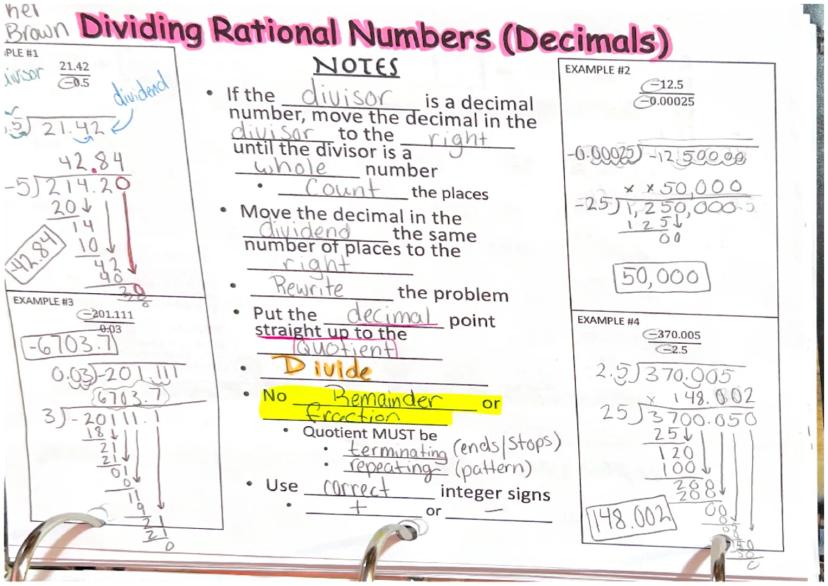 ner
Brown
Dividing Rational Numbers (Decimals)
PLE #1
ivisor
21.42
-0.5
dividend
.5)21.42
42.84
-5)214.20
20
14
10
42
40
20
-42.84
NOTES
• If the divisor is a decimal
number, move the decimal in the
divisor to the right
until the divisor is a
whole number
• Count the places
• Move the decimal in the
dividend the same
number of places to the
right
• Rewrite the problem
• Put the decimal point
straight up to the
Quotient
• Divide
• No Remainder or
fraction
• Quotient MUST be
• terminating (ends/stops)
• repeating (pattern)
• Use correct integer signs
• + or −
EXAMPLE #2
-12.5
-0.00025
-0.00025)-12.50000
x x 50,000
-25)1,250,000
125
00
50,000
EXAMPLE #3
-201.111
0.03
-6703.7
0.03)-201.111
6703.7
3)-20111.1
18
21
21
01
0
11
9
21
21
0
EXAMPLE #4
-370.005
-2.5
2.5)370.005
x 148.002
25)3700.050
25
120
100
200
200
00
50
50
0
148.002